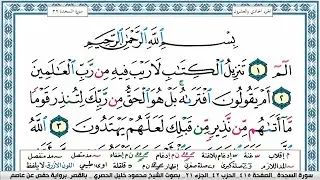 الجزء الحادي والعشرون
سورة السجدة
بِسْمِ اللَّهِ الرَّحْمَٰنِ الرَّحِيمِ
الٓمٓ ۝١ تَنزِيلُ ٱلْكِتَٰبِ لَا رَيْبَ فِيهِ مِن رَّبِّ ٱلْعَٰلَمِينَ
۝٢ أَمْ يَقُولُونَ ٱفْتَرَىٰهُ بَلْ هُوَ ٱلْحَقُّ مِن رَّبِّكَ لِتُنذِرَ قَوْمًا
مَّآ أَتَىٰهُم مِّن نَّذِيرٍ مِّن قَبْلِكَ لَعَلَّهُمْ يَهْتَدُونَ ۝٣ ٱللَّهُ
سورة السجدة ٤١٥، الجزء ٢١، بصوت الشيخ محمود خليل الحصري، بالقصر برواية حفص عن عاصم